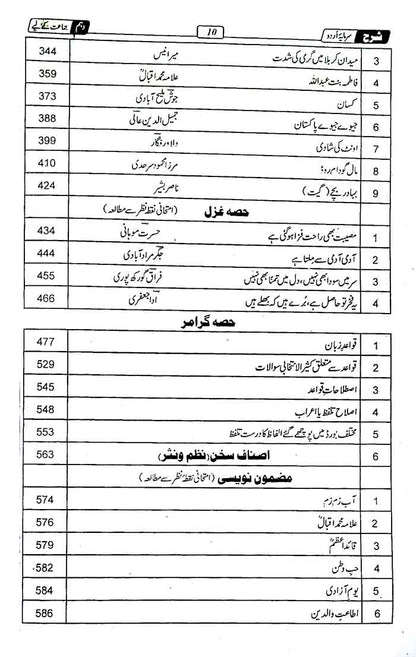 شرح سرمایۂ اردو 10 دہم جماعت کے لیے
3 میدانِ کربلا میں گرمی کی شدت میر انیس 344
4 فاطمہ بنت عبداللہ علامہ محمد اقبالؒ 359
5 کسان جوش ملیح آبادی 373
6 جیوے جیوے پاکستان جمیل الدین عالی 388
7 اونٹ کی شادی دلاور فگار 399
8 مال گودام روڈ مرزا محمود سرحدی 410
9 بہادر بچے (گیت) ناصر بشیر 424
حصہ غزل (امتحانی نقطہ نظر سے مطالعہ)
1 مصیبت بھی راحت فزا ہو گئی ہے حسرت موہانی 434
2 آدمی آدمی سے ملتا ہے جگر مراد آبادی 444
3 سر میں سودا بھی نہیں، دل میں تمنا بھی نہیں فراق گورکھ پوری 455
4 یہ فخر تو حاصل ہے، بُرے ہیں کہ بھلے ہیں ادا جعفری 466
حصہ گرامر
1 قواعدِ زبان 477
2 قواعد سے متعلق کثیر الانتخابی سوالات 529
3 اصطلاحاتِ قواعد 545
4 اصلاحِ تلفظ یا اعراب 548
5 مختلف بورڈ میں پوچھے گئے الفاظ کا درست تلفظ 553
6 اصناف سخن (نظم ونثر) 563
مضمون نویسی (امتحانی نقطہ نظر سے مطالعہ)
1 آب زم زم 574
2 علامہ محمد اقبالؒ 576
3 قائد اعظمؒ 579
4 حب وطن 582
5 یومِ آزادی 584
6 اطاعتِ والدین 586